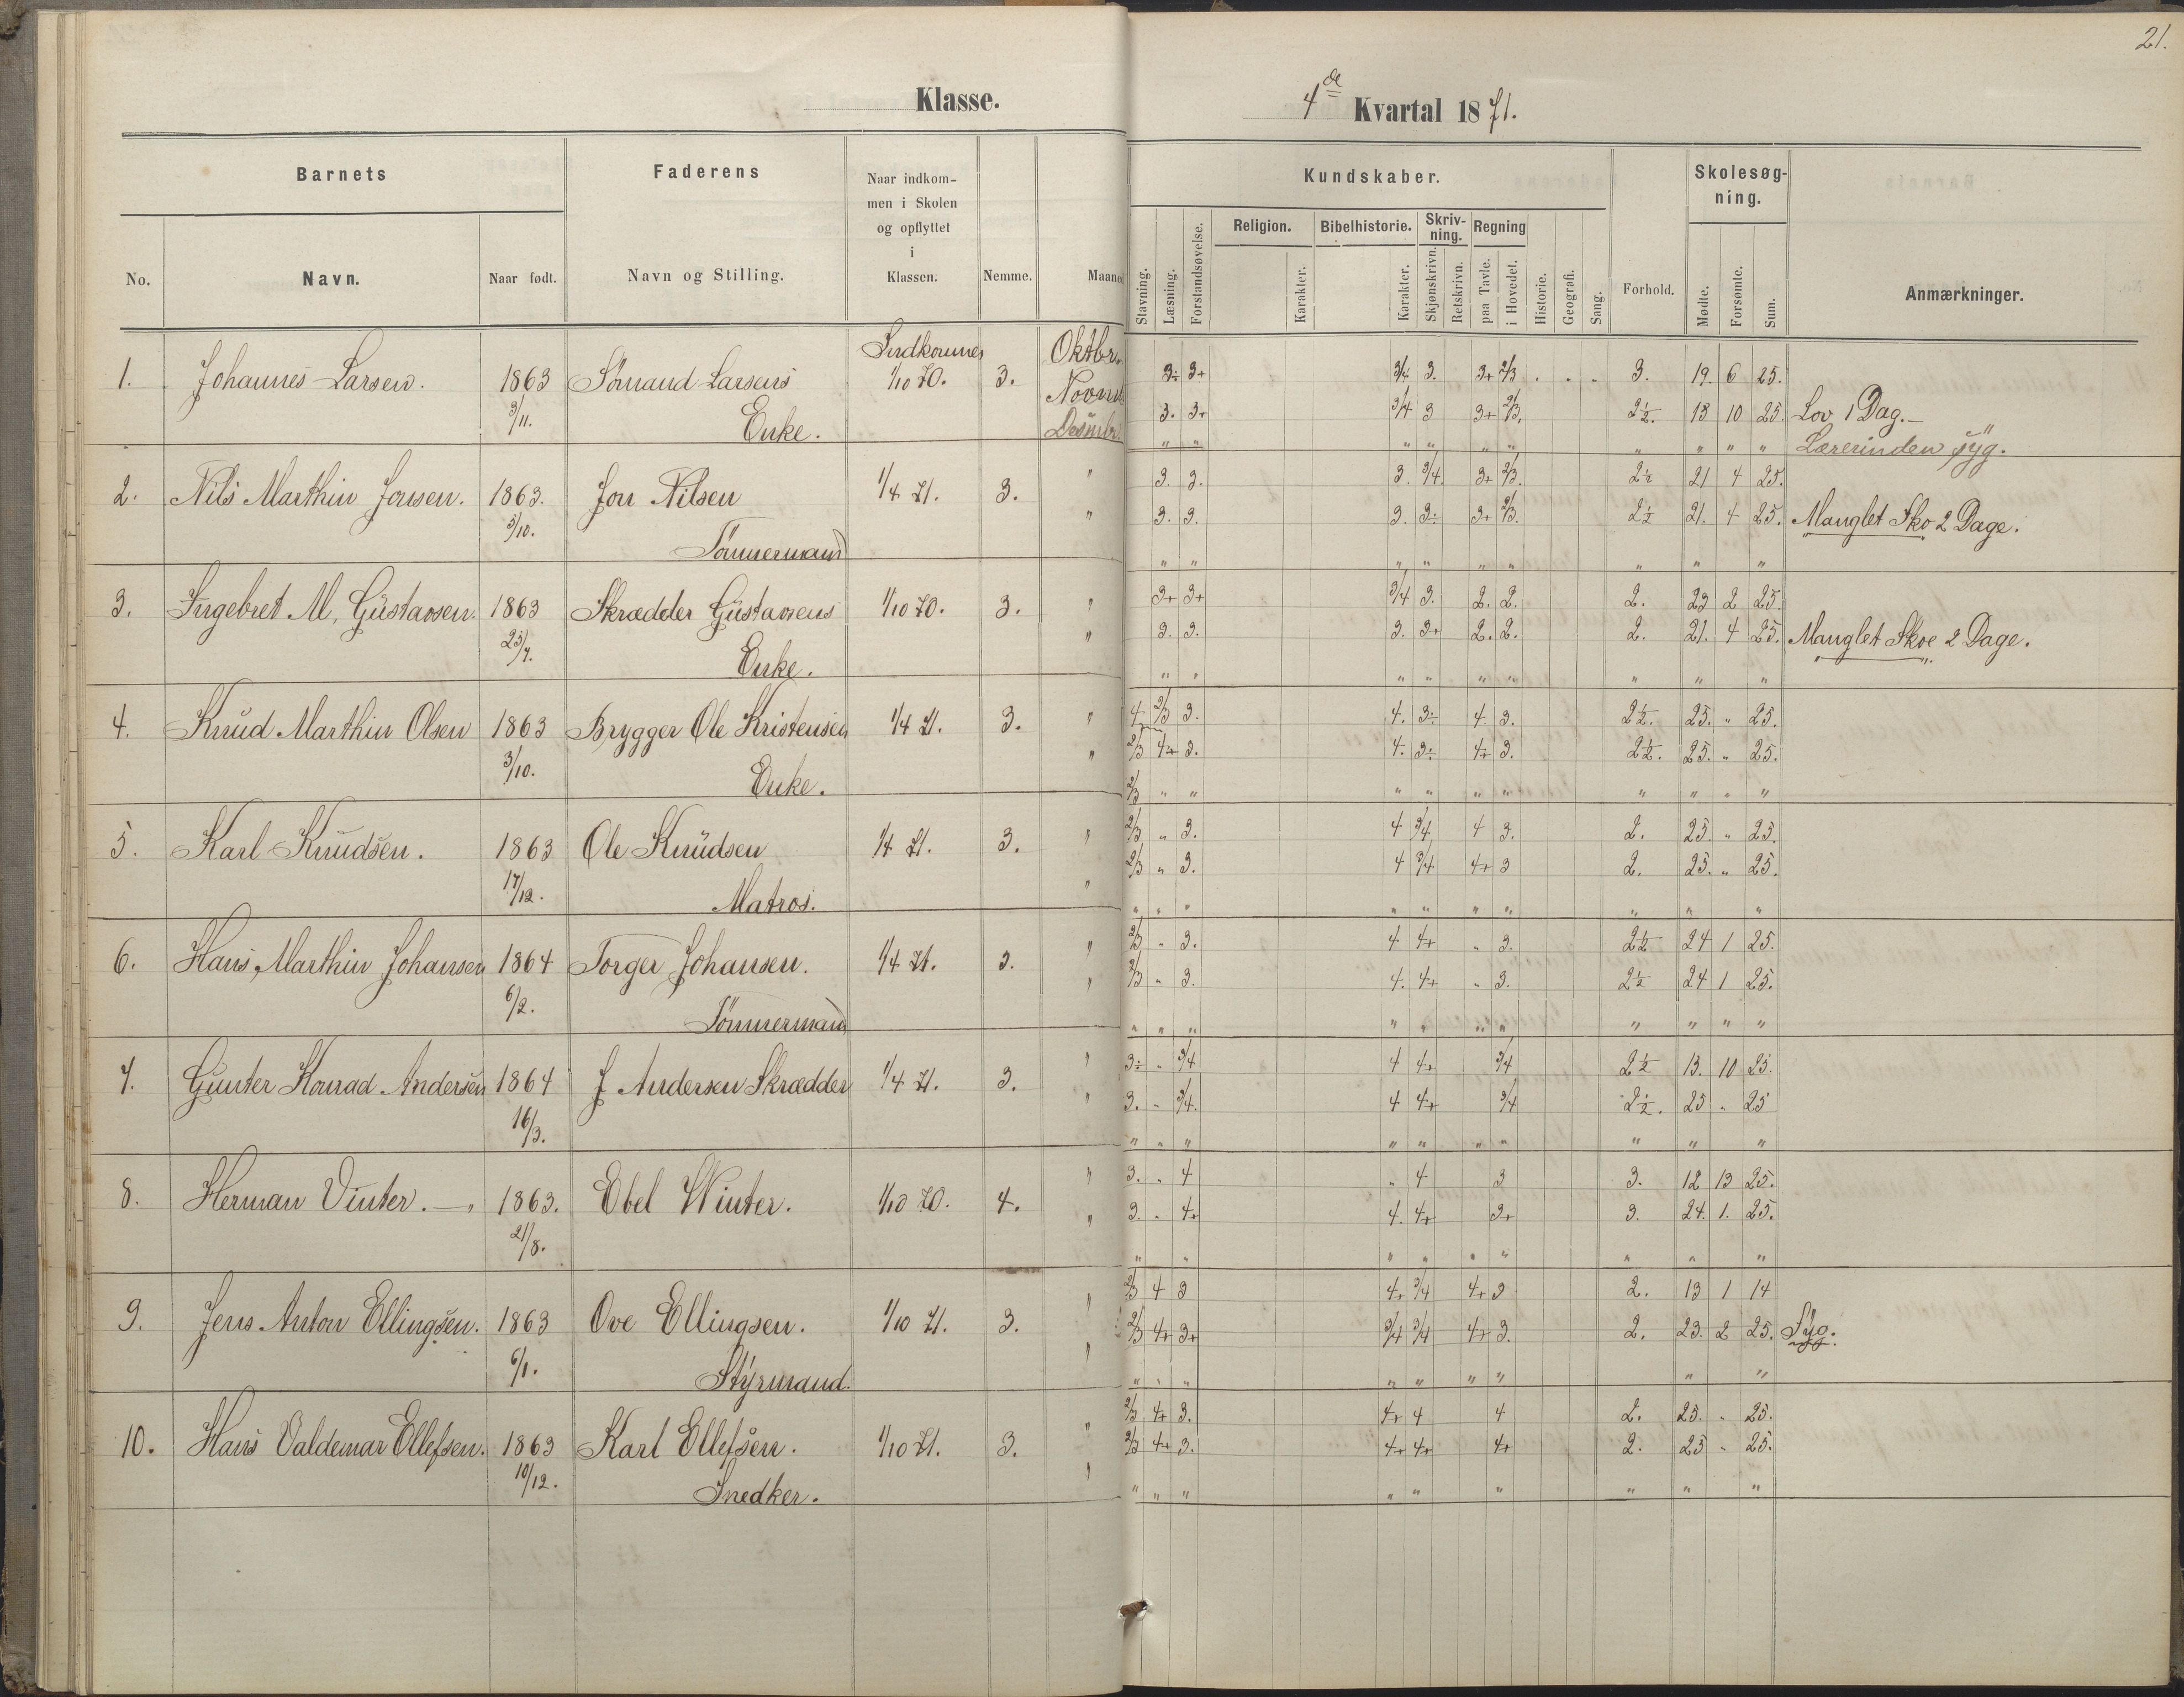 21.
Klasse.
4de Kvartal 1871.
Barnets
Faderens
Naar indkom-
men i Skolen
og opflyttet
i
Klassen.
No.
Navn.
Naar født.
Navn og Stilling.
Nemme.
Maaned
Kundskaber.
Skolesøg-
ning.
Stavning.
Læsning.
Forstandsøvelse.
Religion.
Karakter.
Bibelhistorie.
Karakter.
Skriv-
ning.
Skjønskrivn.
Retskrivn.
Regning
paa Tavle.
i Hovedet.
Historie.
Geografi.
Sang.
Forhold.
Mødte.
Forsømte.
Sum.
Anmærkninger.
1. Johannes Larsen. 1863 Sömand Larsens Indkommen 1/10 70. 3. Oktbr. 3÷ 3+ 3/4 3. 3+ 2/3 3. 19. 6 25.
3/11. Enke. Novm 3. 3+ 3/4 3 3+ 2/3. 2½. 13 10 25. Lov 1 Dag.
Desmbr. " " " " " " " " " " Lærerinden syg.
2. Nils Marthin Jonsen. 1863. Jon Nilsen 1/4 71. 3. " 3. 3. 3. 3/4. 3+ 2/3. 2½ 21 4 25.
5/10. Tömmermand " 3. 3. 3. 3÷ 3+ 2/3. 2½ 21. 4 25. Manglet Sko 2 Dage.
" " " " " " " " "
3. Ingebret M, Gustavsen. 1863 Skrædder Gustavsens 1/10 70. 3. " 3+ 3+ 3/4 3. 2. 2. 2. 23 2 25.
23/7. Enke. " 3. 3. 3. 3+ 2. 2. 2. 21. 4 25. Manglet Skoe 2 Dage.
" " " " " " " " "
4. Knud Marthin Olsen 1863 Brygger Ole Kristensen 1/4 71. 3. " 4 2/3 3. 4. 3÷ 4. 3. 2½. 25. " 25.
3/10. Enke. " 2/3 4+ 3. 4. 3÷ 4+ 3. 2½. 25. " 25.
2/3 " " " " " " " " " "
5. Karl Knudsen. 1863 Ole Knudsen 1/4 71. 3. " 2/3 " 3. 4 3/4 4 3. 2. 25. " 25.
17/12. Matros. " 2/3 " 3. 4 3/4 4+ 3 2. 25. " 25.
" " " " " " " " " "
6. Hans Marthin Johansen 1864 Torger Johansen. 1/4 71. 3. " 2/3 " 3. 4 4+ " 3. 2½ 24 1 25.
6/2. Tömmermand " 2/3 " 3. 4. 4+ " 3. 2½ 24 1 25.
" " " " " " " " " " "
7. Gunter Konrad Andersen 1864 J Andersen Skrædder 1/4 71. 3. " 3÷ " 3/4 4 4+ 3/4 2½ 13. 10 25.
16/3. " 3. " 3/4. 4 4+ 3/4 2½. 25 " 25
" " " " " " " " " "
8. Herman Vinter. 1863. Ebel Winter. 1/10 70. 4. " 3. " 4 " 4 3 3. 12 13 25.
21/8. " 3. " 4+ 4. 4+ 3+ 3. 24. 1. 25.
" " " " " " " " "
9. Jens Anton Ellingsen. 1863 Ove Ellingsen. 1/10 71. 3. " 2/3 4 3 4+ 3/4 4+ 3 2. 13 1 14
6/1. Styrmand. " 2/3 4+ 3+ 3/4 3/4 4+ 3. 2. 23. 2 25. Syg.
" " " " " " " " "
10. Hans Valdemar Ellefsen. 1863 Karl Ellefsen. 1/10 71. 3. " 2/3 4+ 3. 4+ 4 4 2. 25. " 25.
10/12. Snedker. " 2/3 4+ 3. 4+ 4+ 4+ 2. 25 " 25.
" " " " " " " " "